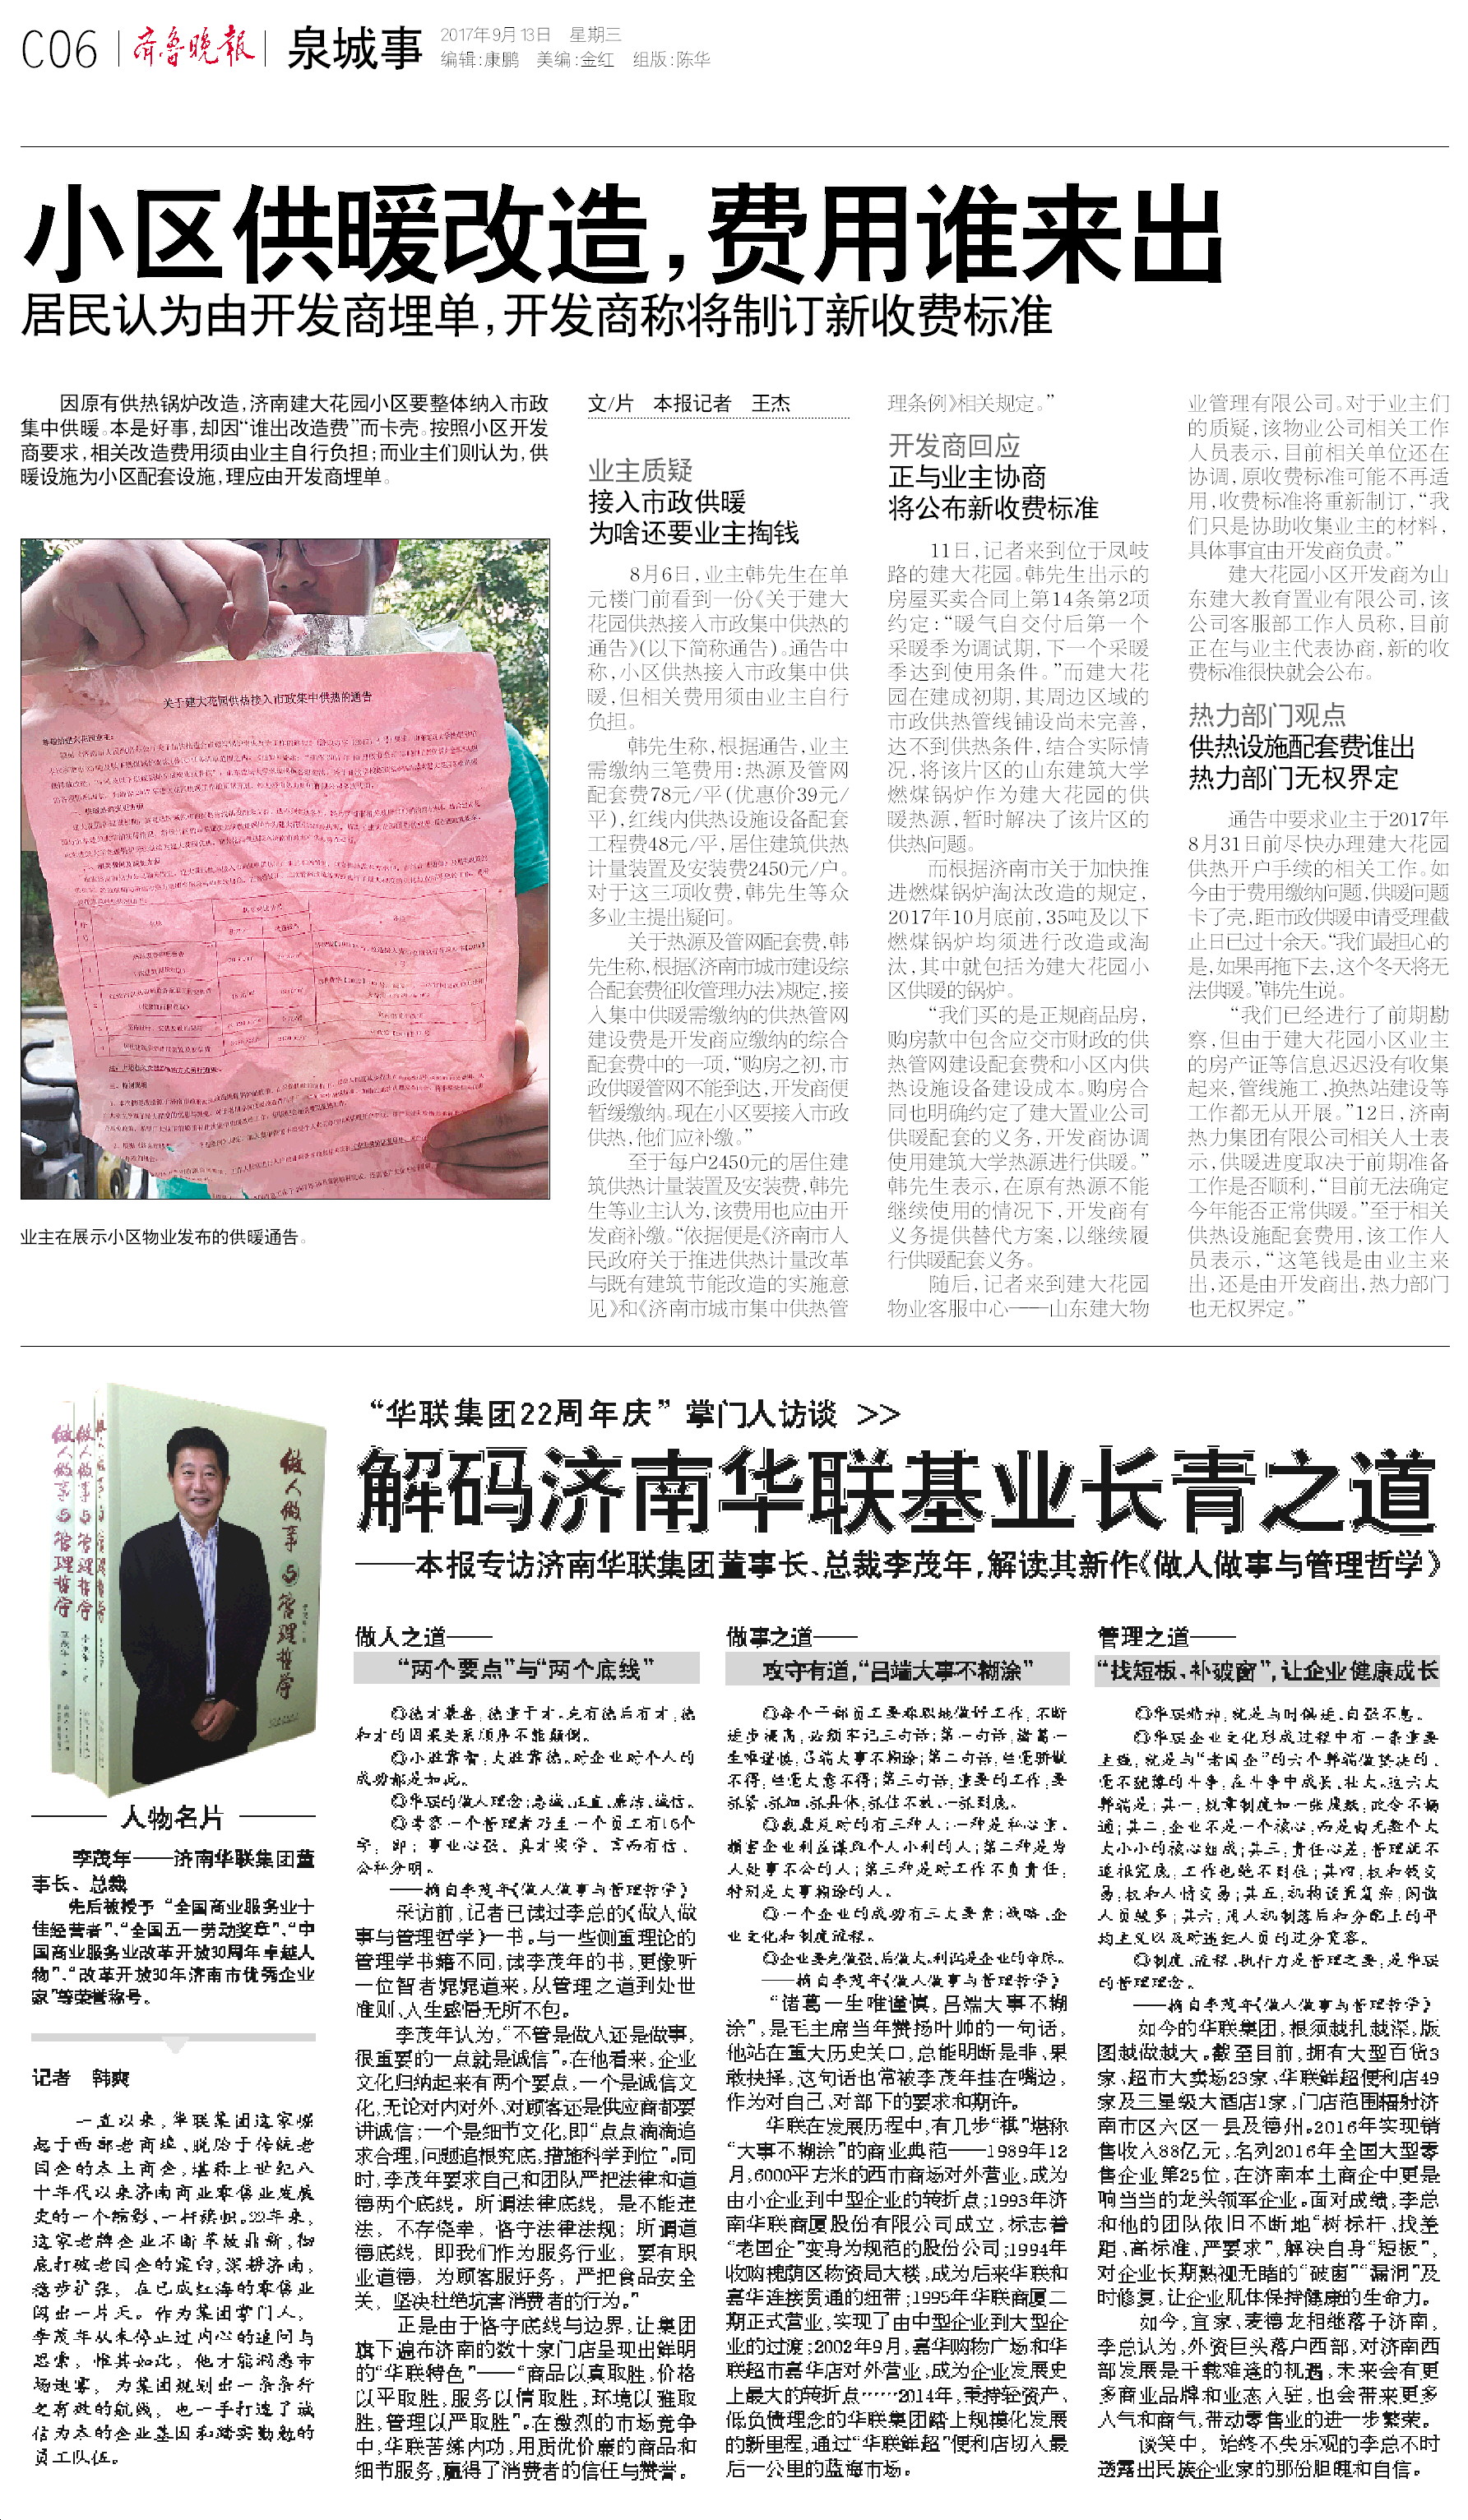 C06
齐鲁晚报
泉城事
2017年9月13日 星期三
编辑:康鹏 美编:金红 组版:陈华
小区供暖改造,费用谁来出
居民认为由开发商埋单,开发商称将制订新收费标准
因原有供热锅炉改造,济南建大花园小区要整体纳入市政
集中供暖。本是好事,却因“谁出改造费”而卡壳。按照小区开发
商要求,相关改造费用须由业主自行负担;而业主们则认为,供
暖设施为小区配套设施,理应由开发商埋单。
关于建大花园供热接入市政集中供热的通告
业主在展示小区物业发布的供暖通告。
文/片 本报记者 王杰
业主质疑
接入市政供暖
为啥还要业主掏钱
8月6日,业主韩先生在单
元楼门前看到一份《关于建大
花园供热接入市政集中供热的
通告》(以下简称通告)。通告中
称,小区供热接入市政集中供
暖,但相关费用须由业主自行
负担。
韩先生称,根据通告,业主
需缴纳三笔费用:热源及管网
配套费78元/平(优惠价39元/
平),红线内供热设施设备配套
工程费48元/平,居住建筑供热
计量装置及安装费2450元/户。
对于这三项收费,韩先生等众
多业主提出疑问。
关于热源及管网配套费,韩
先生称,根据《济南市城市建设综
合配套费征收管理办法》规定,接
入集中供暖需缴纳的供热管网
建设费是开发商应缴纳的综合
配套费中的一项,“购房之初,市
政供暖管网不能到达,开发商便
暂缓缴纳。现在小区要接入市政
供热,他们应补缴。”
至于每户2450元的居住建
筑供热计量装置及安装费,韩先
生等业主认为,该费用也应由开
发商补缴。“依据便是《济南市人
民政府关于推进供热计量改革
与既有建筑节能改造的实施意
见》和《济南市城市集中供热管
理条例》相关规定。”
开发商回应
正与业主协商
将公布新收费标准
11日,记者来到位于凤岐
路的建大花园。韩先生出示的
房屋买卖合同上第14条第2项
约定:“暖气自交付后第一个
采暖季为调试期,下一个采暖
季达到使用条件。”而建大花
园在建成初期,其周边区域的
市政供热管线铺设尚未完善,
达不到供热条件,结合实际情
况,将该片区的山东建筑大学
燃煤锅炉作为建大花园的供
暖热源,暂时解决了该片区的
供热问题。
而根据济南市关于加快推
进燃煤锅炉淘汰改造的规定,
2017年10月底前,35吨及以下
燃煤锅炉均须进行改造或淘
汰,其中就包括为建大花园小
区供暖的锅炉。
“我们买的是正规商品房,
购房款中包含应交市财政的供
热管网建设配套费和小区内供
热设施设备建设成本。购房合
同也明确约定了建大置业公司
供暖配套的义务,开发商协调
使用建筑大学热源进行供暖。”
韩先生表示,在原有热源不能
继续使用的情况下,开发商有
义务提供替代方案,以继续履
行供暖配套义务。
随后,记者来到建大花园
物业客服中心——山东建大物
业管理有限公司。对于业主们
的质疑,该物业公司相关工作
人员表示,目前相关单位还在
协调,原收费标准可能不再适
用,收费标准将重新制订,“我
们只是协助收集业主的材料,
具体事宜由开发商负责。”
建大花园小区开发商为山
东建大教育置业有限公司,该
公司客服部工作人员称,目前
正在与业主代表协商,新的收
费标准很快就会公布。
热力部门观点
供热设施配套费谁出
热力部门无权界定
通告中要求业主于2017年
8月31日前尽快办理建大花园
供热开户手续的相关工作。如
今由于费用缴纳问题,供暖问题
卡了壳,距市政供暖申请受理截
止日已过十余天。“我们最担心的
是,如果再拖下去,这个冬天将无
法供暖。”韩先生说。
“我们已经进行了前期勘
察,但由于建大花园小区业主
的房产证等信息迟迟没有收集
起来,管线施工、换热站建设等
工作都无从开展。”12日,济南
热力集团有限公司相关人士表
示,供暖进度取决于前期准备
工作是否顺利,“目前无法确定
今年能否正常供暖。”至于相关
供热设施配套费用,该工作人
员表示,“这笔钱是由业主来
出,还是由开发商出,热力部门
也无权界定。”
做人做事与管理哲学
人物名片
李茂年——济南华联集团董
事长、总裁
先后被授予“全国商业服务业十
佳经营者”、“全国五一劳动奖章”、“中
国商业服务业改革开放30周年卓越人
物”、“改革开放30年济南市优秀企业
家”等荣誉称号。
记者 韩爽
一直以来,华联集团这家崛
起于西部老商埠、脱胎于传统老
国企的本土商企,堪称上世纪八
十年代以来济南商业零售业发展
史的一个缩影、一杆旗帜。22年来,
这家老牌企业不断革故鼎新,彻
底打破老国企的窠臼,深耕济南,
稳步扩张,在已成红海的零售业
闯出一片天。作为集团掌门人,
李茂年从未停止过内心的追问与
思索,惟其如此,他才能洞悉市
场迷雾,为集团规划出一条条行
之有效的航线,也一手打造了诚
信为本的企业基因和踏实勤勉的
员工队伍。
“华联集团22周年庆”掌门人访谈 >>
解码济南华联基业长青之道
——本报专访济南华联集团董事长、总裁李茂年,解读其新作《做人做事与管理哲学》
做人之道——
“两个要点”与“两个底线”
◎德才兼备,德重于才。先有德后有才,德
和才的因果关系顺序不能颠倒。
◎小胜靠智,大胜靠德。对企业对个人的
成功都是如此。
◎华联的做人理念:忠诚、正直、廉洁、诚信。
◎考察一个管理者乃至一个员工有16个
字,即:事业心强、真才实学、言而有信、
公私分明。
——摘自李茂年《做人做事与管理哲学》
采访前,记者已读过李总的《做人做
事与管理哲学》一书。与一些侧重理论的
管理学书籍不同,读李茂年的书,更像听
一位智者娓娓道来,从管理之道到处世
准则、人生感悟无所不包。
李茂年认为,“不管是做人还是做事,
很重要的一点就是诚信”。在他看来,企业
文化归纳起来有两个要点,一个是诚信文
化,无论对内对外、对顾客还是供应商都要
讲诚信;一个是细节文化,即“点点滴滴追
求合理,问题追根究底,措施科学到位”。同
时,李茂年要求自己和团队严把法律和道
德两个底线。所谓法律底线,是不能违
法,不存侥幸,恪守法律法规;所谓道
德底线,即我们作为服务行业,要有职
业道德,为顾客服好务,严把食品安全
关,坚决杜绝坑害消费者的行为。”
正是由于恪守底线与边界,让集团
旗下遍布济南的数十家门店呈现出鲜明
的“华联特色”——“商品以真取胜,价格
以平取胜,服务以情取胜,环境以雅取
胜,管理以严取胜”。在激烈的市场竞争
中,华联苦练内功,用质优价廉的商品和
细节服务,赢得了消费者的信任与赞誉。
做事之道——
攻守有道,“吕端大事不糊涂”
◎每个干部员工要称职地做好工作,不断
进步提高,必须牢记三句话:第一句话,诸葛一
生唯谨慎,吕端大事不糊涂;第二句话,丝毫骄傲
不得,丝毫大意不得;第三句话,重要的工作,要
抓紧、抓细、抓具体,抓住不放、一抓到底。
◎我最反对的有三种人:一种是私心重、
损害企业利益谋取个人小利的人;第二种是为
人处事不公的人;第三种是对工作不负责任,
特别是大事糊涂的人。
◎一个企业的成功有三大要素:战略、企
业文化和制度流程。
◎企业要先做强、后做大,利润是企业的命脉。
——摘自李茂年《做人做事与管理哲学》
“诸葛一生唯谨慎,吕端大事不糊
涂”,是毛主席当年赞扬叶帅的一句话,
他站在重大历史关口,总能明断是非、果
敢抉择。这句话也常被李茂年挂在嘴边,
作为对自己、对部下的要求和期许。
华联在发展历程中,有几步“棋”堪称
“大事不糊涂”的商业典范——1989年12
月,6000平方米的西市商场对外营业,成为
由小企业到中型企业的转折点;1993年济
南华联商厦股份有限公司成立,标志着
“老国企”变身为规范的股份公司;1994年
收购槐荫区物资局大楼,成为后来华联和
嘉华连接贯通的纽带;1995年华联商厦二
期正式营业,实现了由中型企业到大型企
业的过渡;2002年9月,嘉华购物广场和华
联超市嘉华店对外营业,成为企业发展史
上最大的转折点……2014年,秉持轻资产、
低负债理念的华联集团踏上规模化发展
的新里程,通过“华联鲜超”便利店切入最
后一公里的蓝海市场。
管理之道——
“找短板、补破窗”,让企业健康成长
◎华联精神,就是与时俱进、自强不息。
◎华联企业文化形成过程中有一条重要
主线,就是与“老国企”的六个弊端做坚决的、
毫不犹豫的斗争,在斗争中成长、壮大。这六大
弊端是:其一,规章制度如一张废纸,政令不畅
通;其二,企业不是一个核心,而是由无数个大
大小小的核心组成;其三,责任心差,管理就不
追根究底,工作也就不到位;其四,权和钱交
易,权和人情交易;其五,机构设置复杂,闲散
人员较多;其六,用人机制落后和分配上的平
均主义以及对违纪人员的过分宽容。
◎制度、流程、执行力是管理之要,是华联
的管理理念。
——摘自李茂年《做人做事与管理哲学》
如今的华联集团,根须越扎越深,版
图越做越大。截至目前,拥有大型百货3
家、超市大卖场23家、华联鲜超便利店49
家及三星级大酒店1家,门店范围辐射济
南市区六区一县及德州。2016年实现销
售收入88亿元,名列2016年全国大型零
售企业第25位,在济南本土商企中更是
响当当的龙头领军企业。面对成绩,李总
和他的团队依旧不断地“树标杆、找差
距、高标准、严要求”,解决自身“短板”,
对企业长期熟视无睹的“破窗”“漏洞”及
时修复,让企业肌体保持健康的生命力。
如今,宜家、麦德龙相继落子济南,
李总认为,外资巨头落户西部,对济南西
部发展是千载难逢的机遇,未来会有更
多商业品牌和业态入驻,也会带来更多
人气和商气,带动零售业的进一步繁荣。
谈笑中,始终不失乐观的李总不时
透露出民族企业家的那份胆魄和自信。